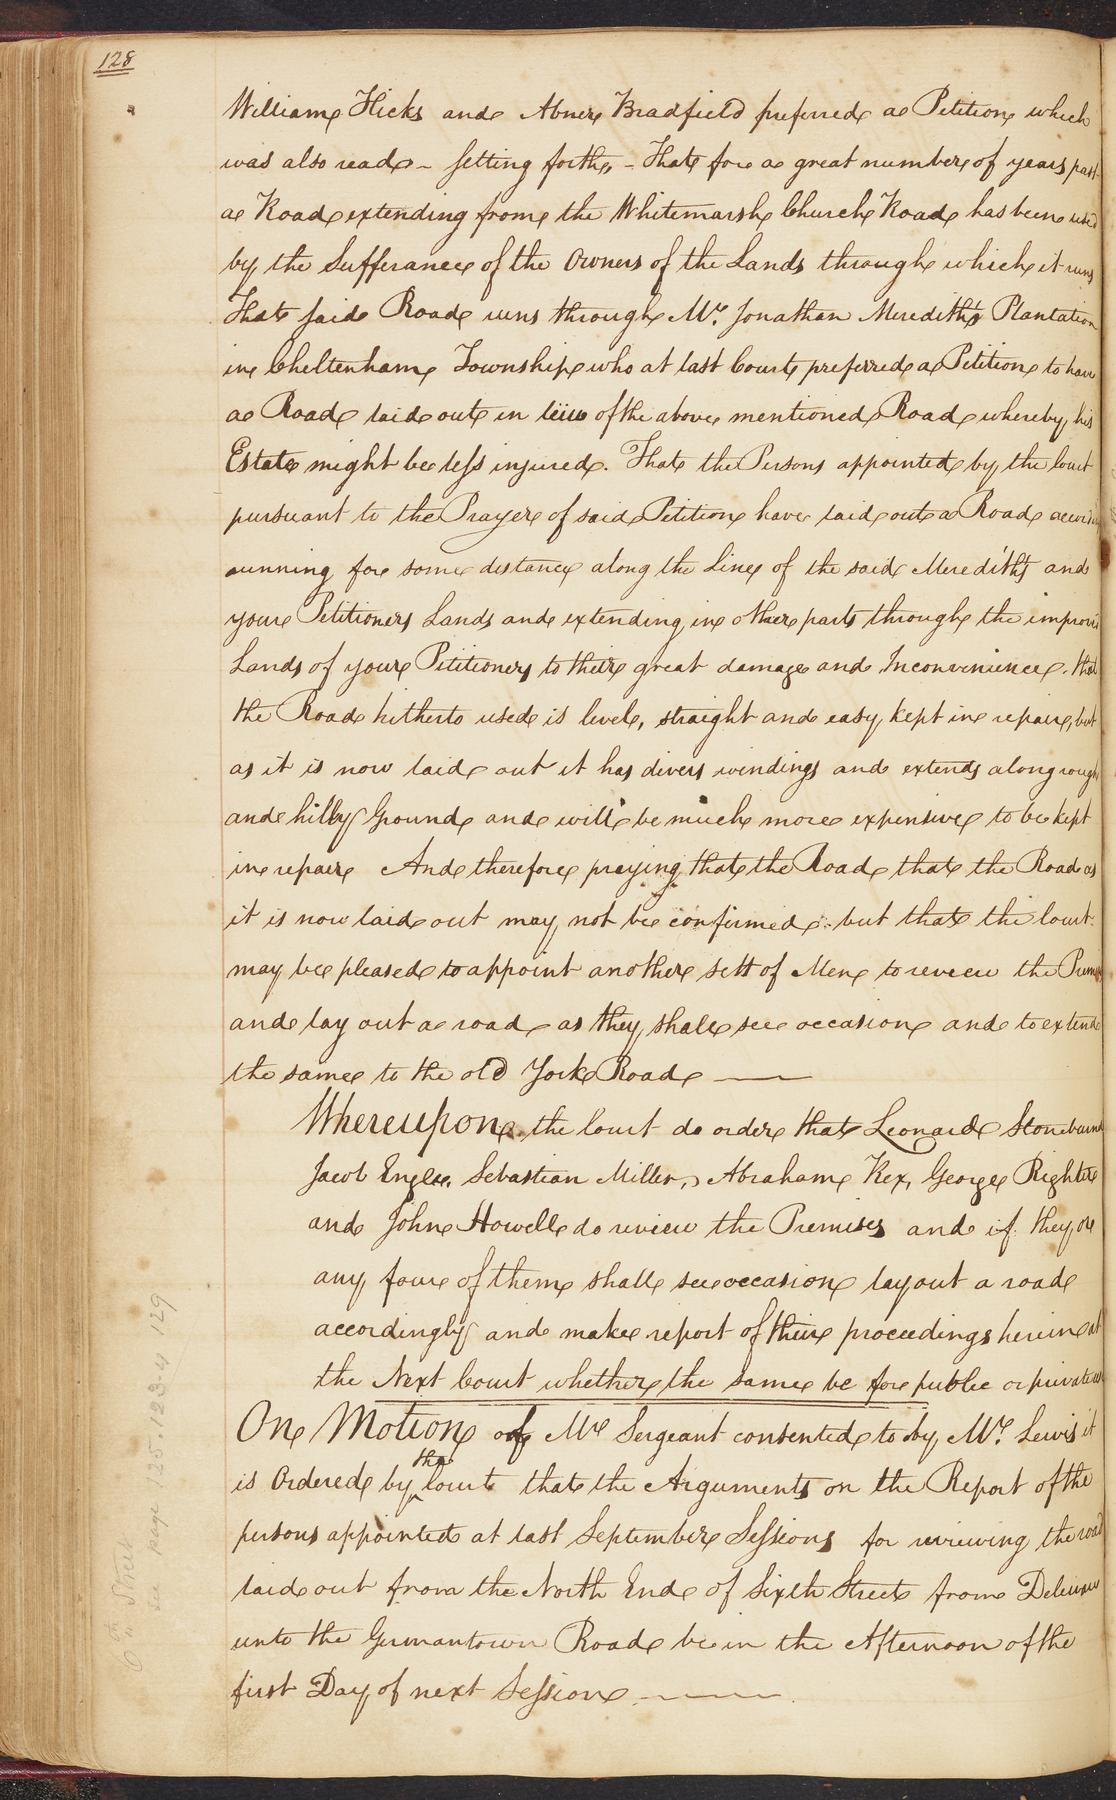 128
William Hicks and Abner Bradfield preferred a Petition which
was also read - setting forth, - That for a great number of years past
a Road extending from the Whitemarsh Church Road has been used
by the Sufferance of the Owners of the Lands through which it runs
That said Road runs through Mr. Jonathan Merediths Plantation
in Cheltenham Township who at last Court preferred a Petition to have
a Road laid out in lieu of the above mentioned Road whereby his
Estate might be less injured. That the Persons appointed by the Court
pursuant to the Prayer of said Petition have laid out a Road
running for some distance along the Line of the said Merediths and
your Petitioners Lands and extending in other parts through the improv'd
Lands of your Petitioners to their great damage and Inconvenience. that
the Road hitherto used is level, straight and easy kept in repair, but
as it is now laid out it has divers windings and extends along rough
and hilly Ground and will be much more expensive to be kept
in repair And therefore praying that the Road that the Road as
it is now laid out may not be confirmed. but that the Court
may be pleased to appoint another sett of Men to review the
and lay out a road as they shall see occasion and to extend
the same to the old York Road
Whereupon the Court do order that Leonard Stoneburner
Jacob Engle, Sebastian Miller, Abraham Rex, George Righter
and John Howell do review the Premises and if they or
any four of them shall see occasion lay out a road
accordingly and make report of their proceedings herein at
the Next Court whether the same be for public or private use
On Motion of Mr Sergeant consented to by Mr. Lewis it
is Ordered by the Court that the Arguments on the Report of the
persons appointed at last September Sessions for reviewing the road
laid out from the North End of Sixth Street from
unto the Germantown Road be in the Afternoon of the
first Day of next Session
6th Street
see page 125. 123-4 129